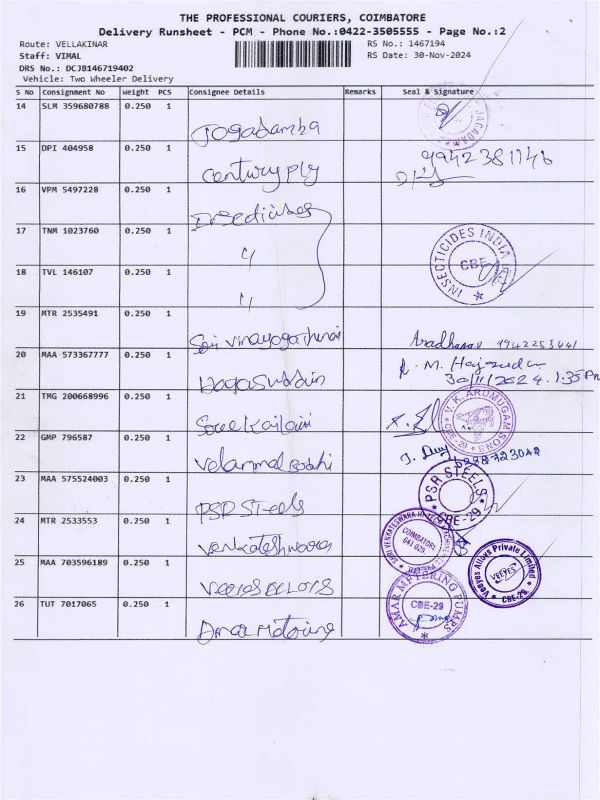 THE PROFESSIONAL COURIERS, COIMBATORE
Delivery Runsheet - PCM - Phone No.:0422-3505555 - Page No.:2
Route: VELLAKINAR RS No.: 1467194
Staff: VIMAL RS Date: 30-Nov-2024
DRS No.: DCJB146719402
Vehicle: Two Wheeler Delivery
S No Consignment No Weight PCS Consignee Details Remarks Seal & Signature
14 SLM 359680788 0.250 1
Jogadamba
15 DPI 404958 0.250 1 9942381146
Century Ply
16 VPM 5497228 0.250 1
17 TNM 1023760 0.250 1 INSECTICIDES INDIA CBE
18 TVL 146107 0.250 1
19 MTR 2535491 0.250 1
20 MAA 573367777 0.250 1 R. M.
30/11/2024. 1:35 Pm
21 TMG 200668996 0.250 1 V.K. ARUMUGAM SONS CBE-29
22 GMP 796587 0.250 1
23 MAA 575524003 0.250 1 PSR STEELS CBE-29
PSR Steels
24 MTR 2533553 0.250 1 COIMBATORE 641 029
Venkateshwara
25 MAA 703596189 0.250 1 Veeyes Alloys Private Limited VEEYES CBE-29
26 TUT 7017065 0.250 1 AMAR METERING PUMPS CBE-29